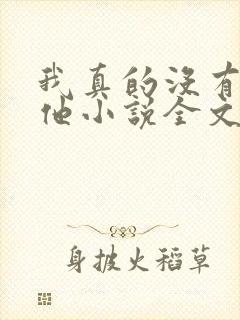 我真的没有
他小说全文
身披火稻草